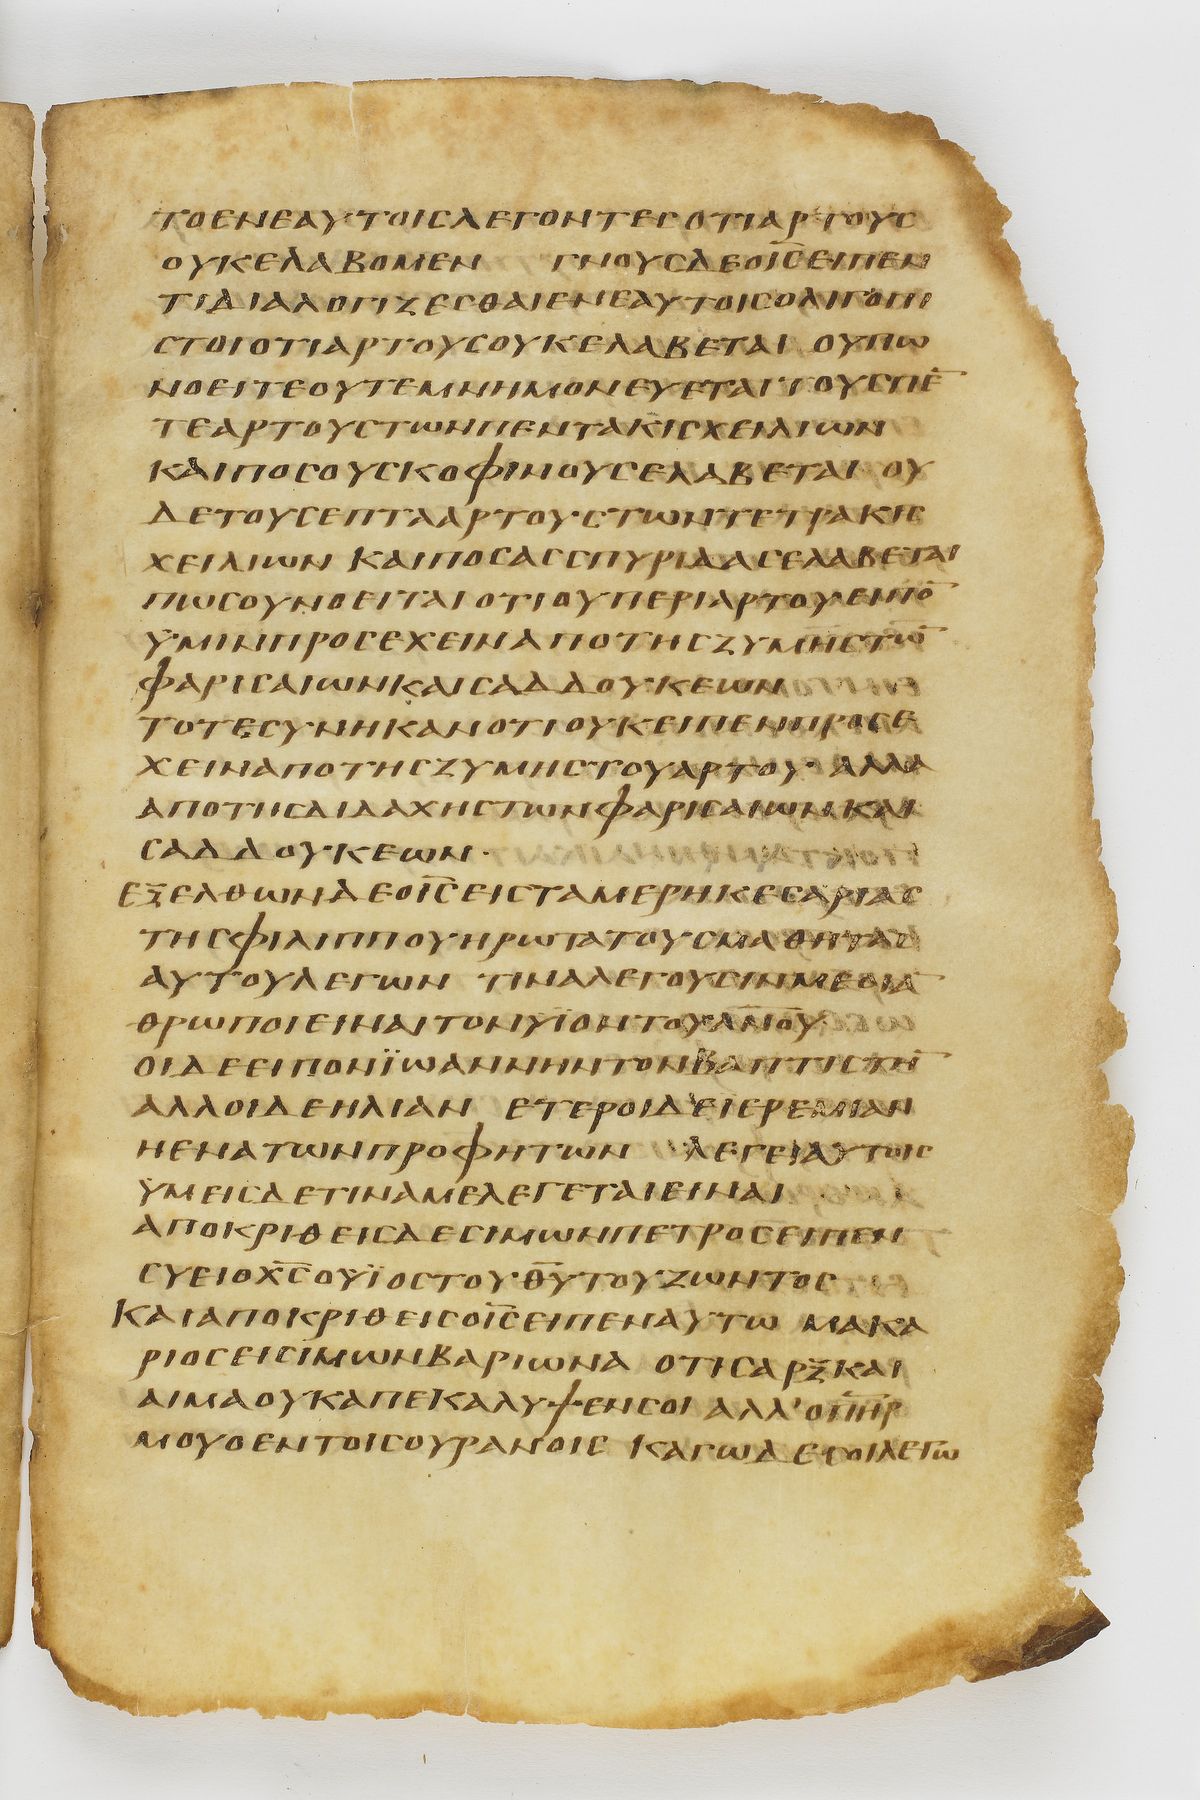 ΤΟΕΝΕΑΥΤΟΙСΛΕΓΟΝΤΕСΟΤΙΑΡΤΟΥС
ΟΥΚΕΛΑΒΟΜΕΝ ΓΝΟΥСΔΕΟΙ̅С̅ΕΙΠΕΝ
ΤΙΔΙΑΛΟΓΙΖΕСΘΑΙΕΝΕΑΥΤΟΙСΟΛΙΓΟΠΙ
СΤΟΙΟΤΙΑΡΤΟΥСΟΥΚΕΛΑΒΕΤΑΙ ΟΥΠΩ
ΝΟΕΙΤΕΟΥΤΕΜΝΗΜΟΝΕΥΕΤΑΙ ΤΟΥСΠΕ̅
ΤΕΑΡΤΟΥСΤΩΝΠΕΝΤΑΚΙСΧΕΙΛΙΩΝ
ΚΑΙΠΟСΟΥСΚΟΦΙΝΟΥСΕΛΑΒΕΤΑΙ ΟΥ
ΔΕΤΟΥСΕΠΤΑΑΡΤΟΥСΤΩΝΤΕΤΡΑΚΙС
ΧΕΙΛΙΩΝ ΚΑΙΠΟСΑССΠΥΡΙΔΑСΕΛΑΒΕΤΑΙ
ΠΩСΟΥΝΟΕΙΤΑΙΟΤΙΟΥΠΕΡΙΑΡΤΟΥΕΙΠΟ̅
ΥΜΙΝΠΡΟСΕΧΕΙΝΑΠΟΤΗСΖΥΜΗСΤΩ̅
ΦΑΡΙСΑΙΩΝΚΑΙСΑΔΔΟΥΚΕΩΝ
ΤΟΤΕСΥΝΗΚΑΝΟΤΙΟΥΚΕΙΠΕΝΠΡΟСΕ
ΧΕΙΝΑΠΟΤΗСΖΥΜΗСΤΟΥΑΡΤΟΥ ΑΛΛΑ
ΑΠΟΤΗСΔΙΔΑΧΗСΤΩΝΦΑΡΙСΑΙΩΝΚΑΙ
СΑΔΔΟΥΚΕΩΝ·
ΕΞΕΛΘΩΝΔΕΟΙ̅С̅ΕΙСΤΑΜΕΡΗΚΕСΑΡΙΑС
ΤΗСΦΙΛΙΠΠΟΥΗΡΩΤΑΤΟΥСΜΑΘΗΤΑС
ΑΥΤΟΥΛΕΓΩΝ ΤΙΝΑΛΕΓΟΥСΙΝΜΕΟΙΑ̅
ΘΡΩΠΟΙΕΙΝΑΙΤΟΝΥΙΟΝΤΟΥΑ̅Ν̅Ο̅Υ̅
ΟΙΔΕΕΙΠΟΝΪΩΑΝΝΗΝΤΟΝΒΑΠΤΙСΤΗ̅
ΑΛΛΟΙΔΕΗΛΙΑΝ ΕΤΕΡΟΙΔΕΙΕΡΕΜΙΑΝ
ΗΕΝΑΤΩΝΠΡΟΦΗΤΩΝ ΛΕΓΕΙΑΥΤΟΙС
ΥΜΕΙСΔΕΤΙΝΑΜΕΛΕΓΕΤΑΙΕΙΝΑΙ
ΑΠΟΚΡΙΘΕΙСΔΕСΙΜΩΝΠΕΤΡΟСΕΙΠΕΝ
СΥΕΙΟΧ̅С̅ΟΥΪΟСΤΟΥΘ̅Υ̅ΤΟΥΖΩΝΤΟС
ΚΑΙΑΠΟΚΡΙΘΕΙСΟΙ̅С̅ΕΙΠΕΝΑΥΤΩ ΜΑΚΑ
ΡΙΟСΕΙСΙΜΩΝΒΑΡΙΩΝΑ ΟΤΙСΑΡΞΚΑΙ
ΑΙΜΑΟΥΚΑΠΕΚΑΛΥΨΕΝСΟΙ ΑΛΛ'ΟΠ̅Η̅Ρ̅
ΜΟΥΟΕΝΤΟΙСΟΥΡΑΝΟΙС ΚΑΓΩΔΕСΟΙΛΕΓΩ